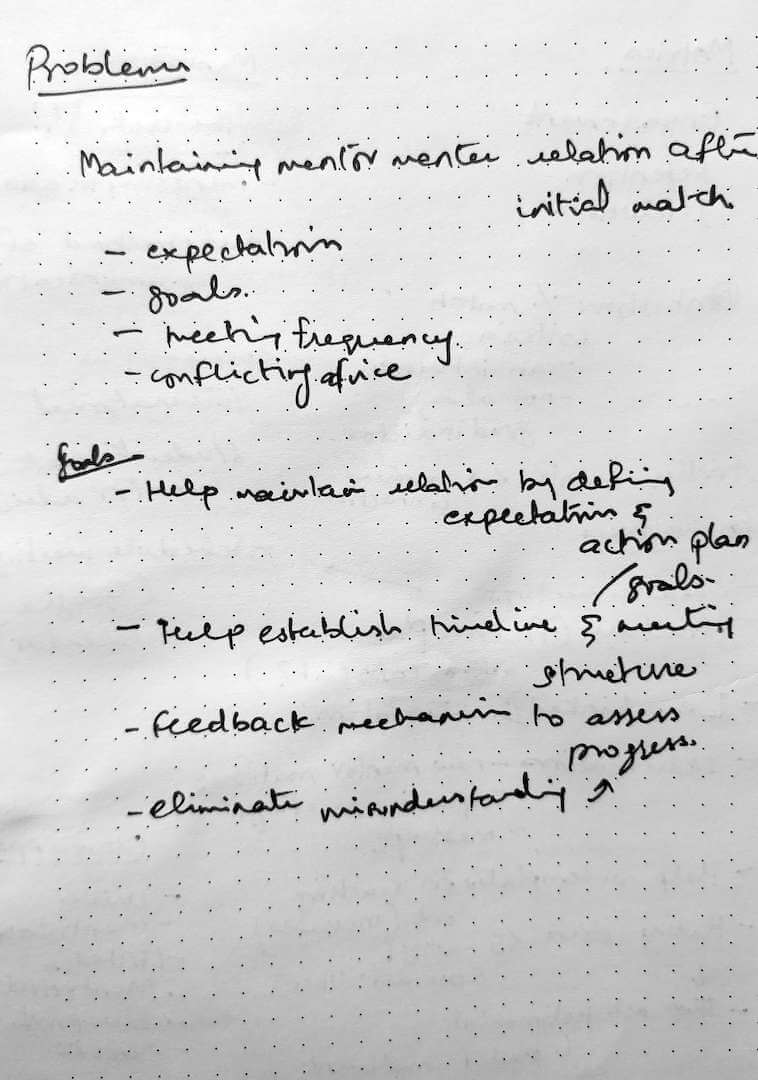 Problems
Maintaining mentor mentee relation after
initial match.
- expectation
- goals.
- meeting frequency
- conflicting advice
Goals
- Help maintain relation by defining
expectation &
action plan
/goals.
- Help establish timeline & meeting
structure
- feedback mechanism to assess
progress.
- eliminate misunderstanding ↗